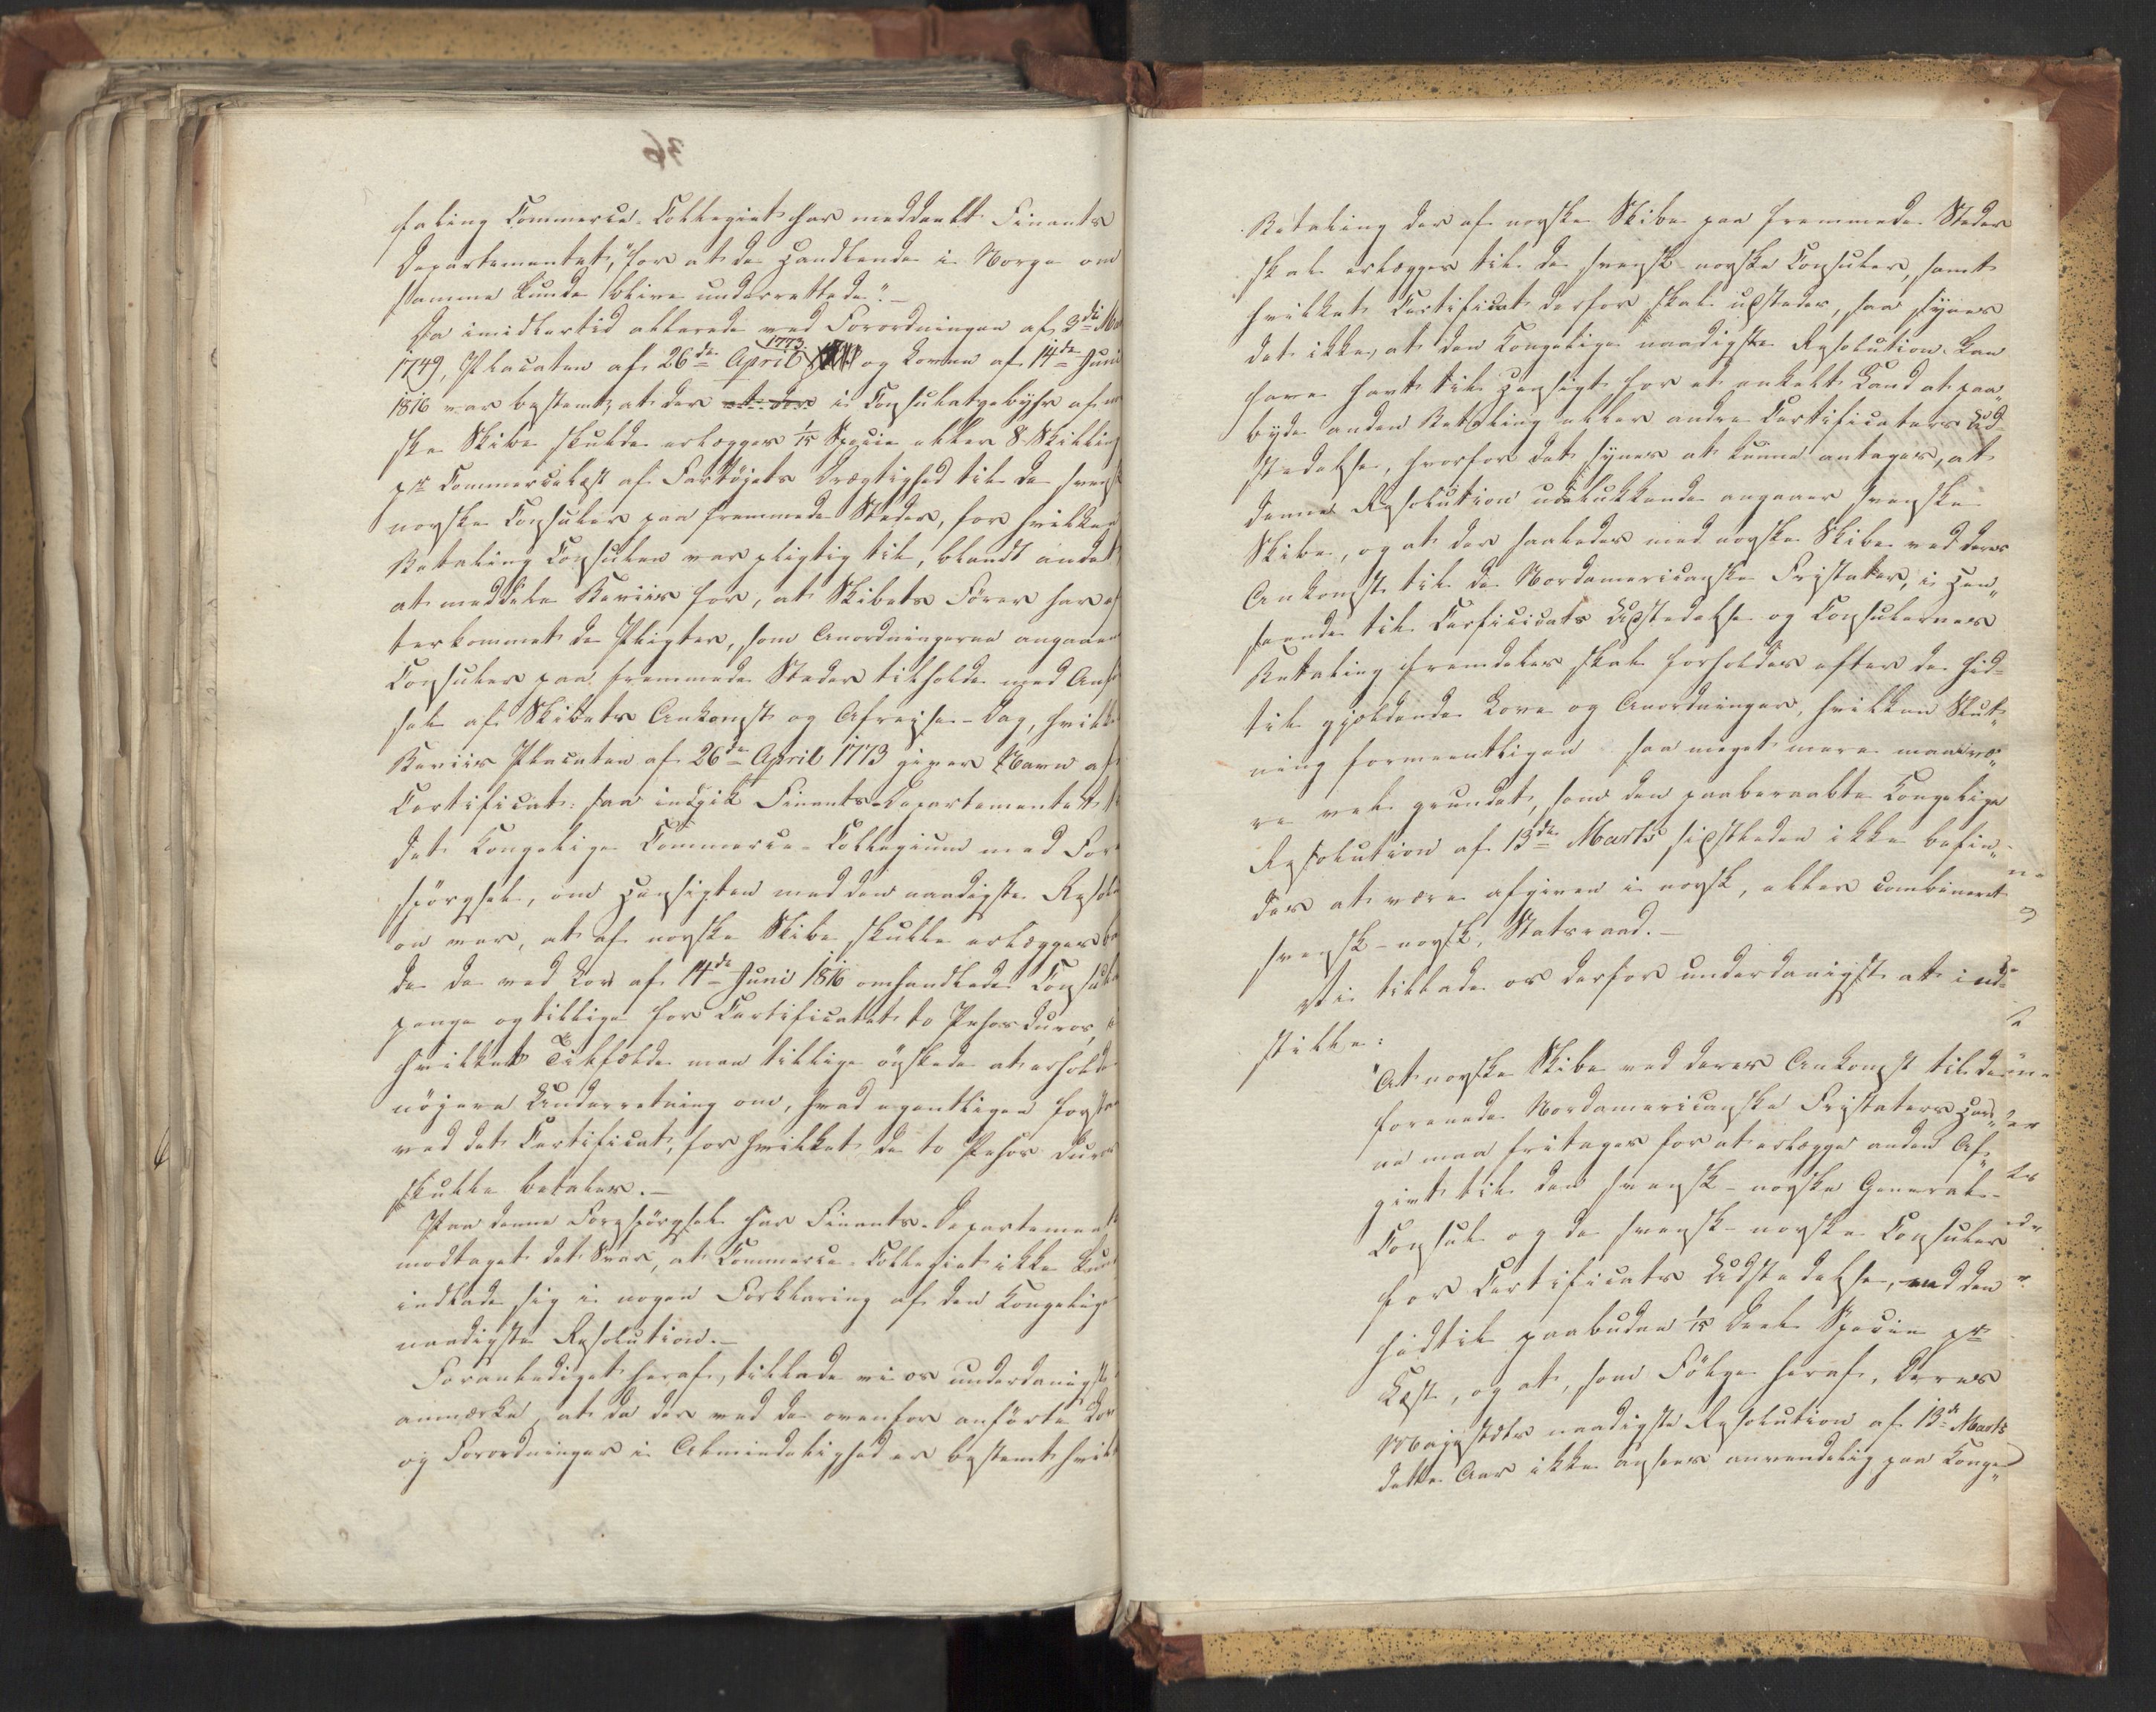 faling Commerce-Collegiet har meddeelt Finants
Departementet, "for at de Handlende i Norge om
samme kunde blive underrettede."-
Da imidlertid allerede ved Forordningen af 3die
1749, Placaten af 26de April 1773 og Loven af 14de Juni
1816 var bestemt, at der at der i Consulatgebyhr af
ske Skibe skulde erlægges 1/15 Specie eller 8 Skilling
pr Commercelæst af Fartøyets Drægtighed til de svensk
norske Consuler paa fremmede Steder, for hvilken
Betaling Consulen var pligtig til, blandt andet
at meddele Beviis for, at Skibets Fører har ef
terkommet de Pligter, som Anordningerne angaaen
Consuler paa fremmede Steder tilholde med
sel af Skibets Ankomst og Afreise-Dag, hvilke
Beviis Placaten af 26de April 1773 giver Navn af
Certificat: saa indgik Finants-Departementet
det Kongelige Commerce-Collegium med For
spörgsel, om Hensigten med den naadigste Resol
on var, at af norske Skibe skulle erlægges
de de ved Lov af 14de Juni 1816 omhandlede Consul
penge og tillige for Certificatet to Pesos duros,
hvilket Tilfælde man tillige önskede at erholde
nöiere Underretning om, hvad egentligen forstaa
ved det Certificat, for hvilket de to Pesos duros
skulle betales.-
Paa denne Forespörgsel har Finants-Departement
modtaget det Svar, at Commerce-Collegiet ikke kun
indlade sig i nogen Forklaring af den Kongelige
naadigste Resolution.-
Foranlediget heraf, tillade vi os underdanigst
anmærke, at da der ved de ovenfor anförte Lov
og Forordninger i Almindelighed er bestemt hvil
Betaling der af norske Skibe paa fremmede Steder
skal erlægges til de svensk-norske Consuler, samt
hvilket Certificat derfor skal udstedes, saa synes
det ikke, at den Kongelige naadigste Resolution kan
have havt til Hensigt for et enkelt Land at paa„
byde anden Betaling eller andre Certificaters Ud
stedelse, hvorfor det synes at kunne antages, at
denne Resolution udelukkende angaaer svenske
Skibe, og at der saaledes med norske Skibe ved deres
Ankomst til de Nordamericanske Fristater, i Hen„
seende til Cerficicats Udstedelse og Consulernes
Betaling fremdeles skal forholdes efter de hid-
til gjældende Love og Anordninger, hvilken Slut„
ning formeentligen saa meget mere maa væ„
re vel grundet, som den paaberaabte Kongelige
Resolution af 13de Marts sidstleden ikke befin„
des at være afgiven i norsk, eller combineret
svensk-norsk, Statsraad.-
Vi tillade os derfor underdanigst at ind-
stille:
"At norske Skibe ved deres Ankomst til de
forenede Nordamericanske Fristaters Hav„
ne maa fritages for at erlægge anden Af„
givt til den svensk-norske General-
Consul og de svensk-norske Consuler
for Certificats Udstedelse, end den
hidtil paabudne 1/15 Deel Specie pr
Læst, og at, som Fölge heraf, Deres
Majestæts naadigste Resolution af 13de Marts
dette Aar ikke ansees anvendelig paa Konge„